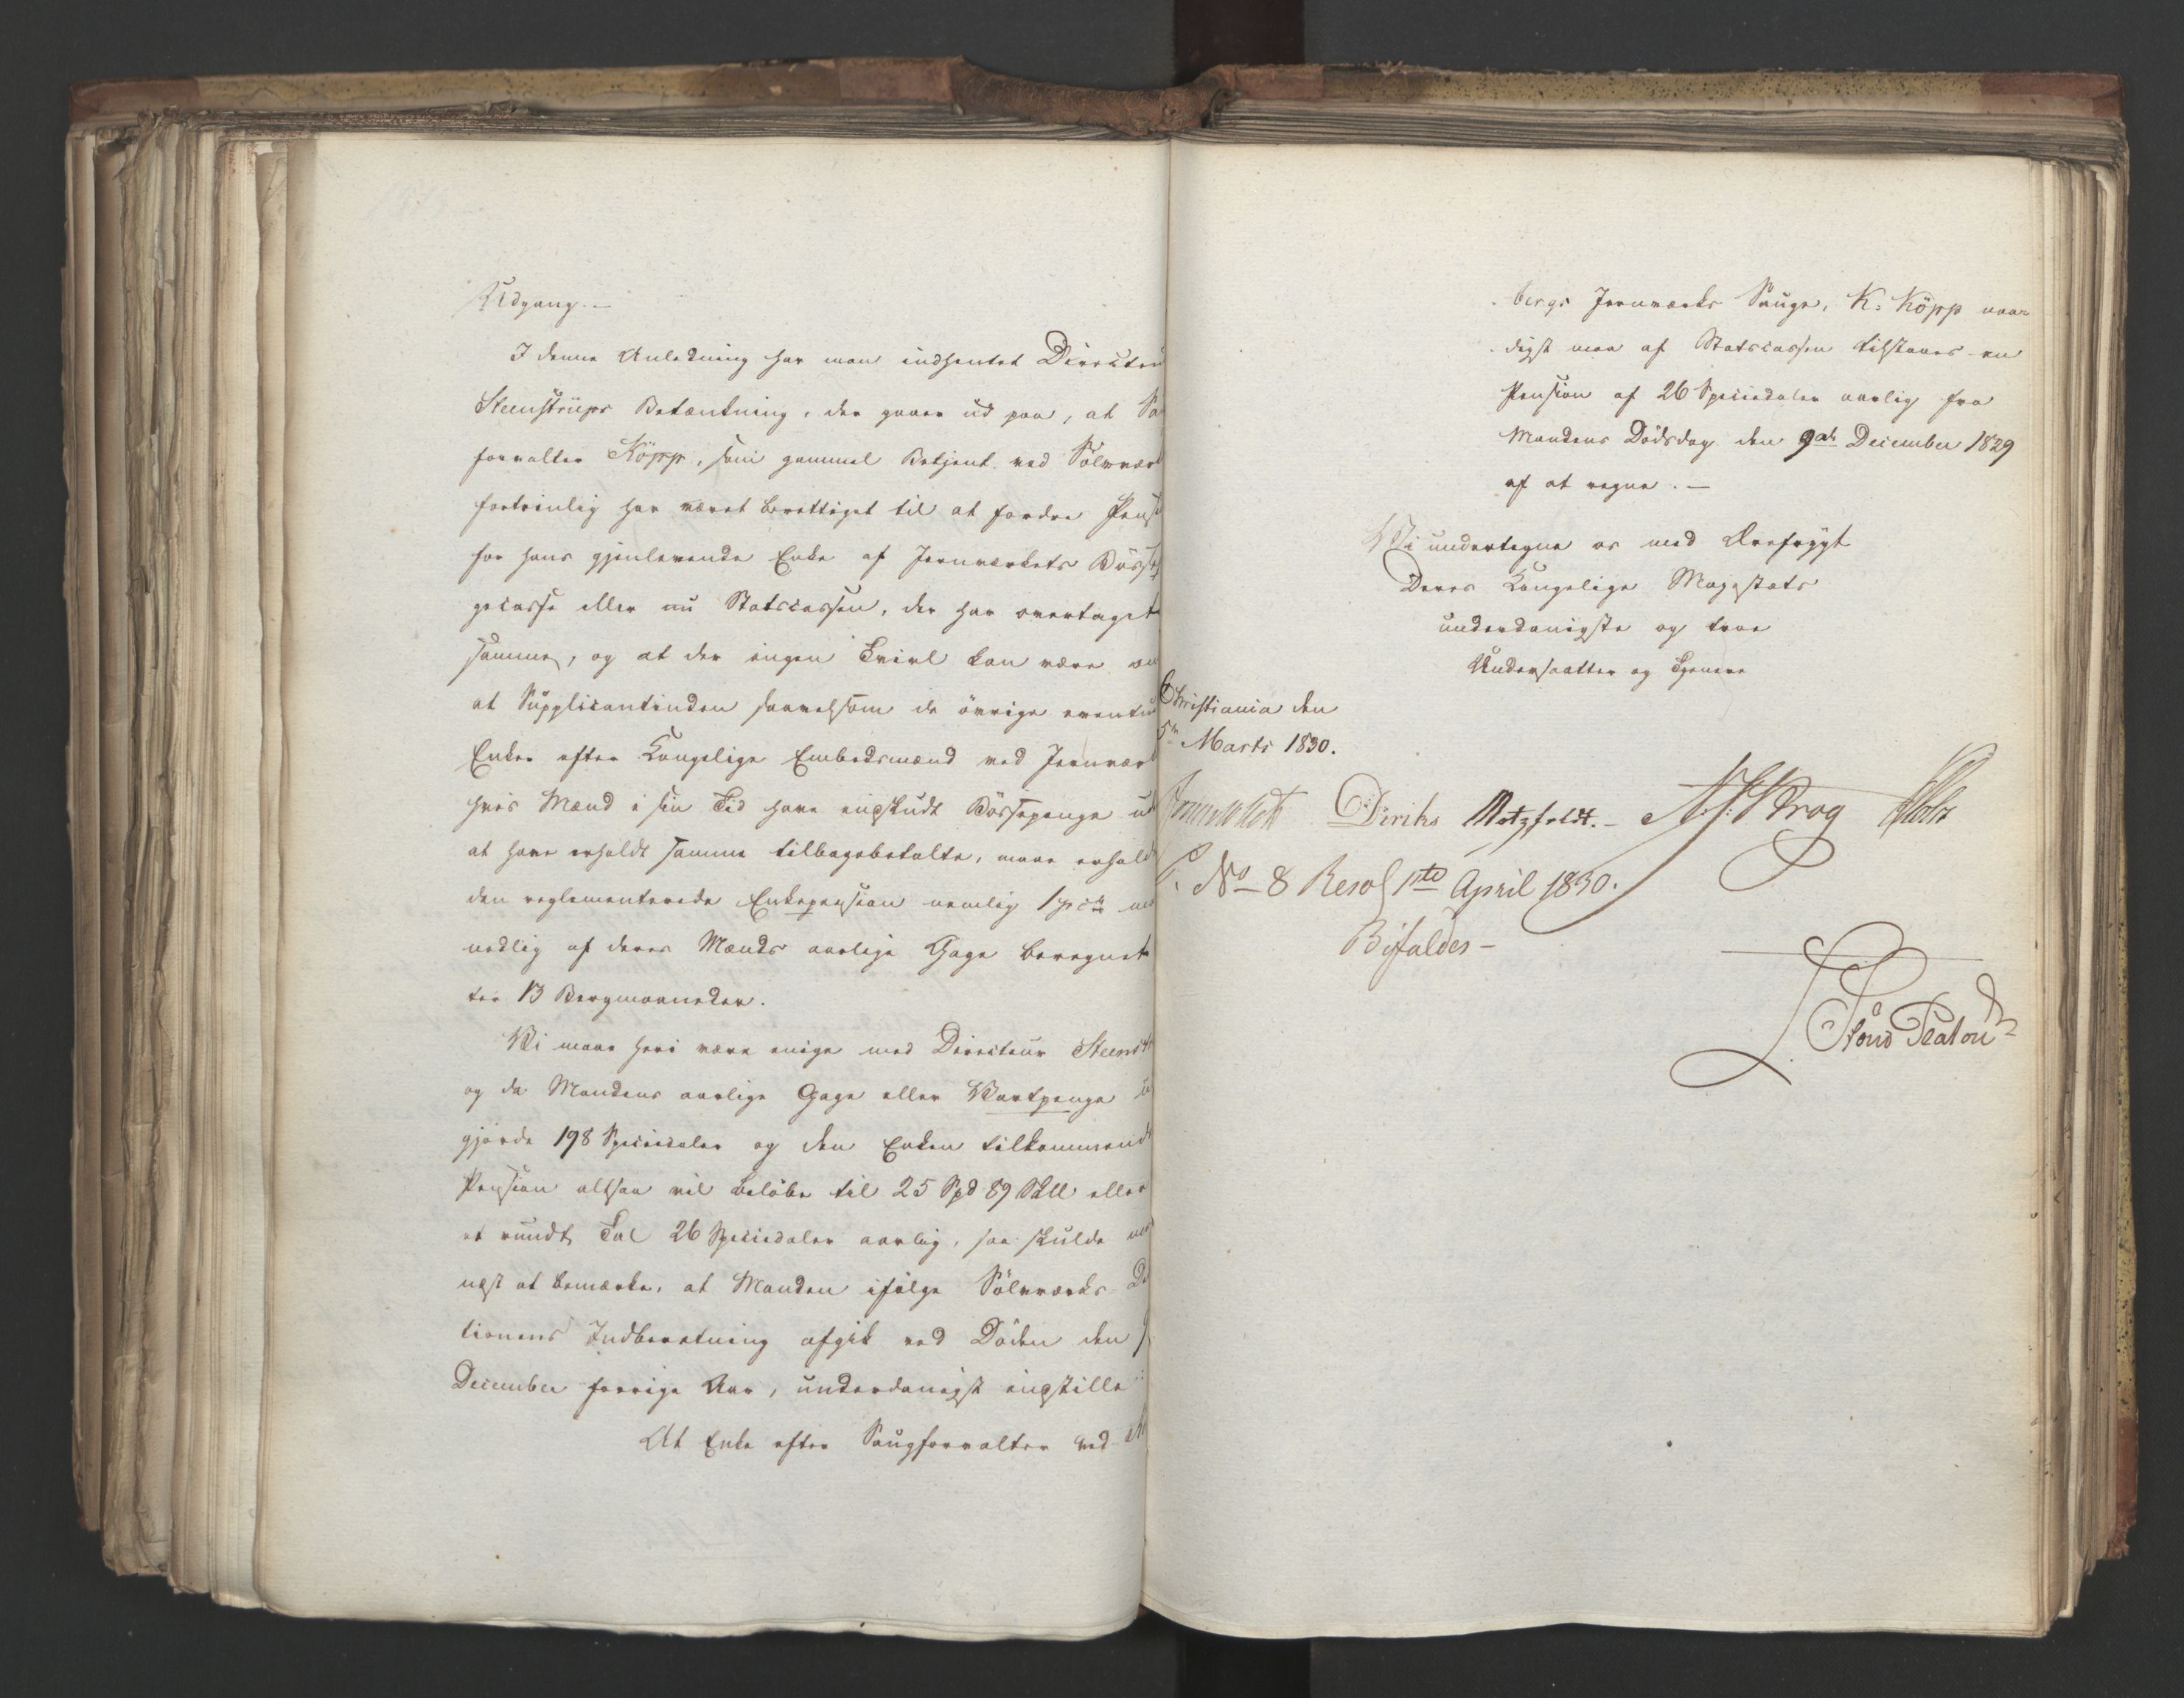 Udgang. —
I denne Anledning har man indhentet Directeu
Steenstrups Betænkning, der gaaer ud paa, at Sa
forvalter Köpp, som gammel Betjent ved Sölvvær
fortrinlig har været berettiget til at fordre Pens
for hans gjenlevende Enke af Jernværkets Bösse
gecasse eller nu Statscassen, der har overtaget
samme, og at der ingen Tvivl kan være om
at Supplicantinden saavelsom de övrige
Enker efter Kongelige Embedsmænd ved Jernvær
hvis Mænd i sin Tid have indskudt Bössepenge ud
at have erholdt samme tilbagebetalte, maae erhold
den reglementerede Enkepension nemlig 1 pct maa
nedlig af deres Mænds aarlige Gage beregnet
ter 13 Bergmaaneder.
Vi maae heri være enige med Directeur Steenst
og da Mandens aarlige Gage eller Vartpenge
gjorde 198 Speciedaler og den Enken tilkommend
Pension altsaa vil belöbe til 25 Spd 89 Skll eller
et rundt Tal 26 Speciedaler aarlig, saa skulde
næst at bemærke, at Manden ifölge Sölvværks-Di
tionens Indberetning afgik ved Döden den 9
December forrige Aar, underdanigst indstille:
At Enke efter Saugforvalter ved
bergs Jernværks Sauge, K: Köpp naa-
digst maa af Statscassen tilstaaes en
Pension af 26 Speciedaler aarlig fra
Mandens Dödsdag den 9de December 1829
af at regne. —
Vi undertegne os med Ærefrygt
Deres Kongelige Majestæts
underdanigste og troe
Undersaatter og Tjenere
Christiania den
5te Marts 1830.
Diriks Motzfeldt. — Krog Holst
No 8 Resol 1ste April 1830.
Bifaldes —